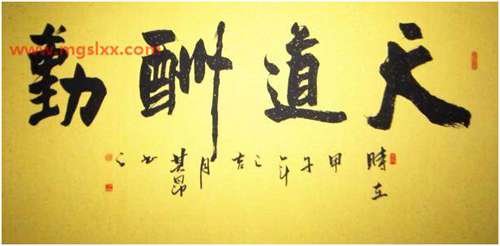 www.mgslxx.com
天道酬勤
時在甲子年吉月其昂书